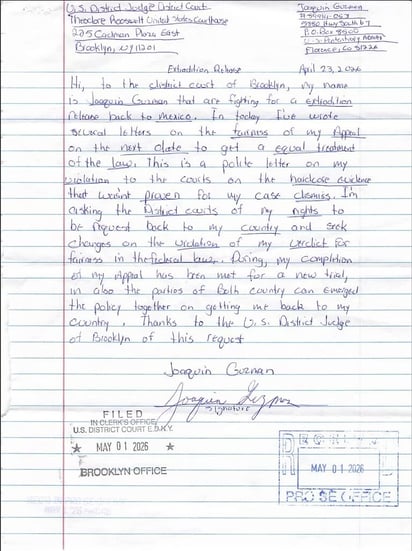 U.S. District Judge District Court
Theodore Roosevelt United States Courthouse
225 Cadman Plaza East
Brooklyn, NY 11201
Joaquin Guzman
#89914-053
5880 Hwy South 67
P.O. Box 8500
U.S. Penitentiary
Florence, Co 81226
Extradition Release
April 23, 2026
Hi, to the district court of Brooklyn, my name
is Joaquin Guzman that are fighting for a extradition
release back to Mexico. In today I've wrote
several letters on the fairness of my Appeal
on the next date to get a equal treatment
of the law. This is a polite letter on my
violation to the courts on the hardcore evidence
that wasn't proven for my case dismiss. I'm
asking the District courts of my rights to
be request back to my country and seek
changes on the violation of my verdict for
fairness in the federal law. During, my completion
of my Appeal has been met for a new trial,
in also the parties of Both country can emerged
the policy together on getting me back to my
country. Thanks to the U.S. District Judge
of Brooklyn of this request
Joaquin Guzman
Joaquin Guzman
Signature
FILED
IN CLERK'S OFFICE
U.S. DISTRICT COURT E.D.N.Y.
★ MAY 01 2026 ★
BROOKLYN OFFICE
MAY 01 2026
PRO SE OFFICE